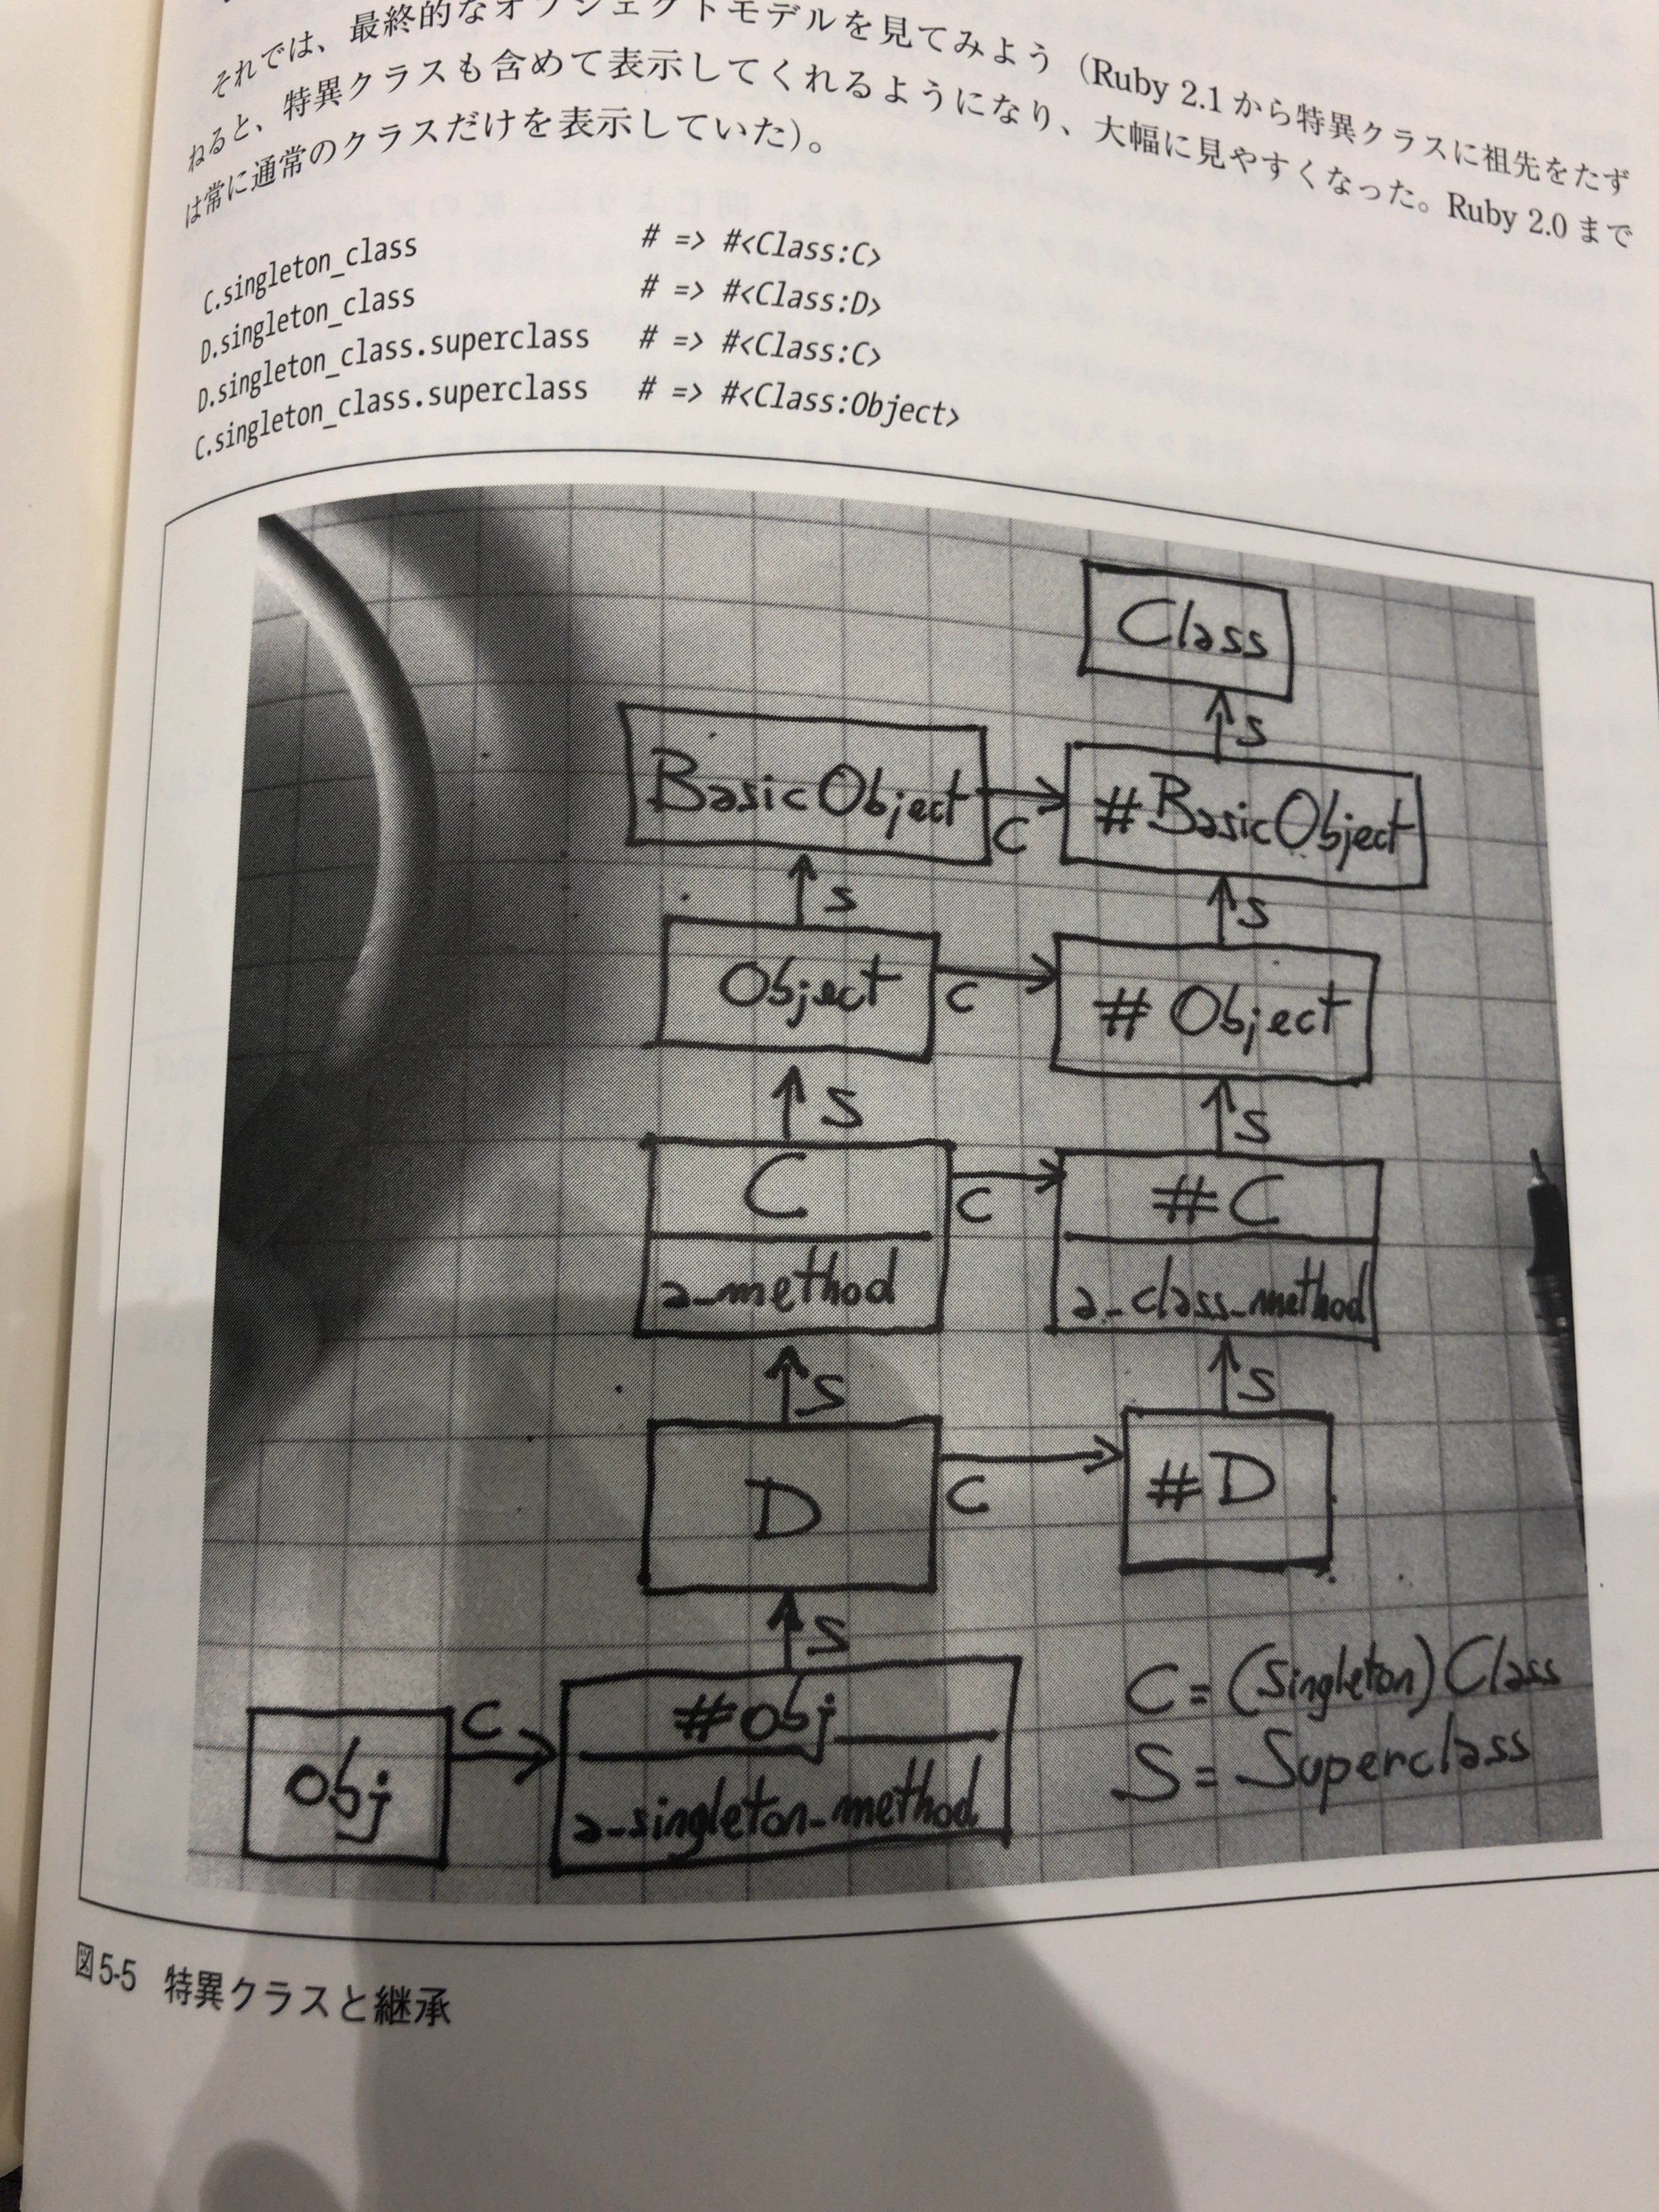 それでは、最終的なオブジェクトモデルを見てみよう（Ruby 2.1 から特異クラスに祖先をたず
ねると、特異クラスも含めて表示してくれるようになり、大幅に見やすくなった。Ruby 2.0 まで
は常に通常のクラスだけを表示していた）。
C.singleton_class # => #<Class:C>
D.singleton_class # => #<Class:D>
D.singleton_class.superclass # => #<Class:C>
C.singleton_class.superclass # => #<Class:Object>
Class
S
BasicObject
C
#BasicObject
S
S
Object
C
# Object
S
S
C
C
#C
a_method
a_class_method
S
S
D
C
#D
S
obj
C
#obj
a_singleton_method
C = (Singleton) Class
S = Superclass
図5-5 特異クラスと継承